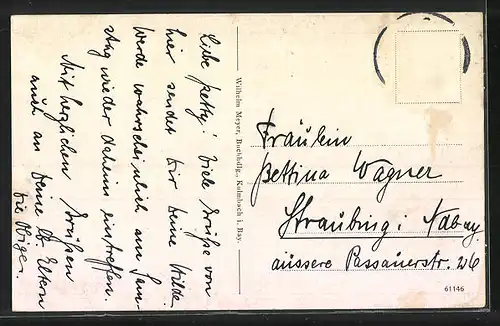 Liebe Betty! Viele Grüße von
hier sendet Dir Deine Hilde.
Werde wahrscheinlich am Sams-
tag wieder daheim eintreffen.
Mit herzlichen Grüßen
auch an Deine lb. Eltern
die Obige.
Wilhelm Meyer, Buchhdlg., Kulmbach i. Bay.
Fräulein
Bettina Wagner
Straubing i. Ndbay.
äussere Passauerstr. 26
61146